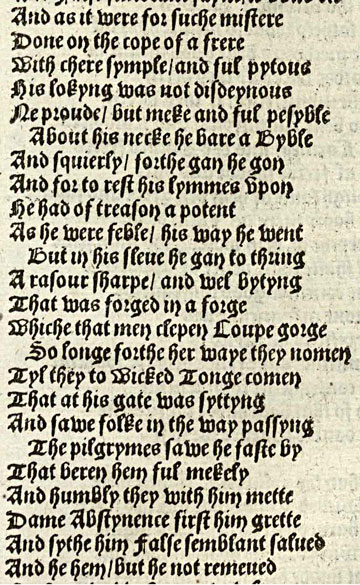 And as it were for suche mistere
Done on the cope of a frere
With chere symple/and ful pytous
His lokyng was not disdeynous
Ne proude/ but meke and ful pesyble
About his necke he bare a Byble
And squierly/ forthe gan he gon
And for to rest his lymmes vpon
He had of treason a potent
As he were feble/ his way he went
But in his sleue he gan to thring
A rasour sharpe/ and wel bytyng
That was forged in a forge
Whiche that men clepen Coupe gorge
So longe forthe her waye they nomen
Tyl they to Wicked Tonge comen
That at his gate was syttyng
And sawe folke in the way passyng
The pilgrymes sawe he faste by
That beren hem ful mekely
And humbly they with him mette
Dame Abstynence first him grette
And sythe him False semblant salued
And he hem/but he not remeued